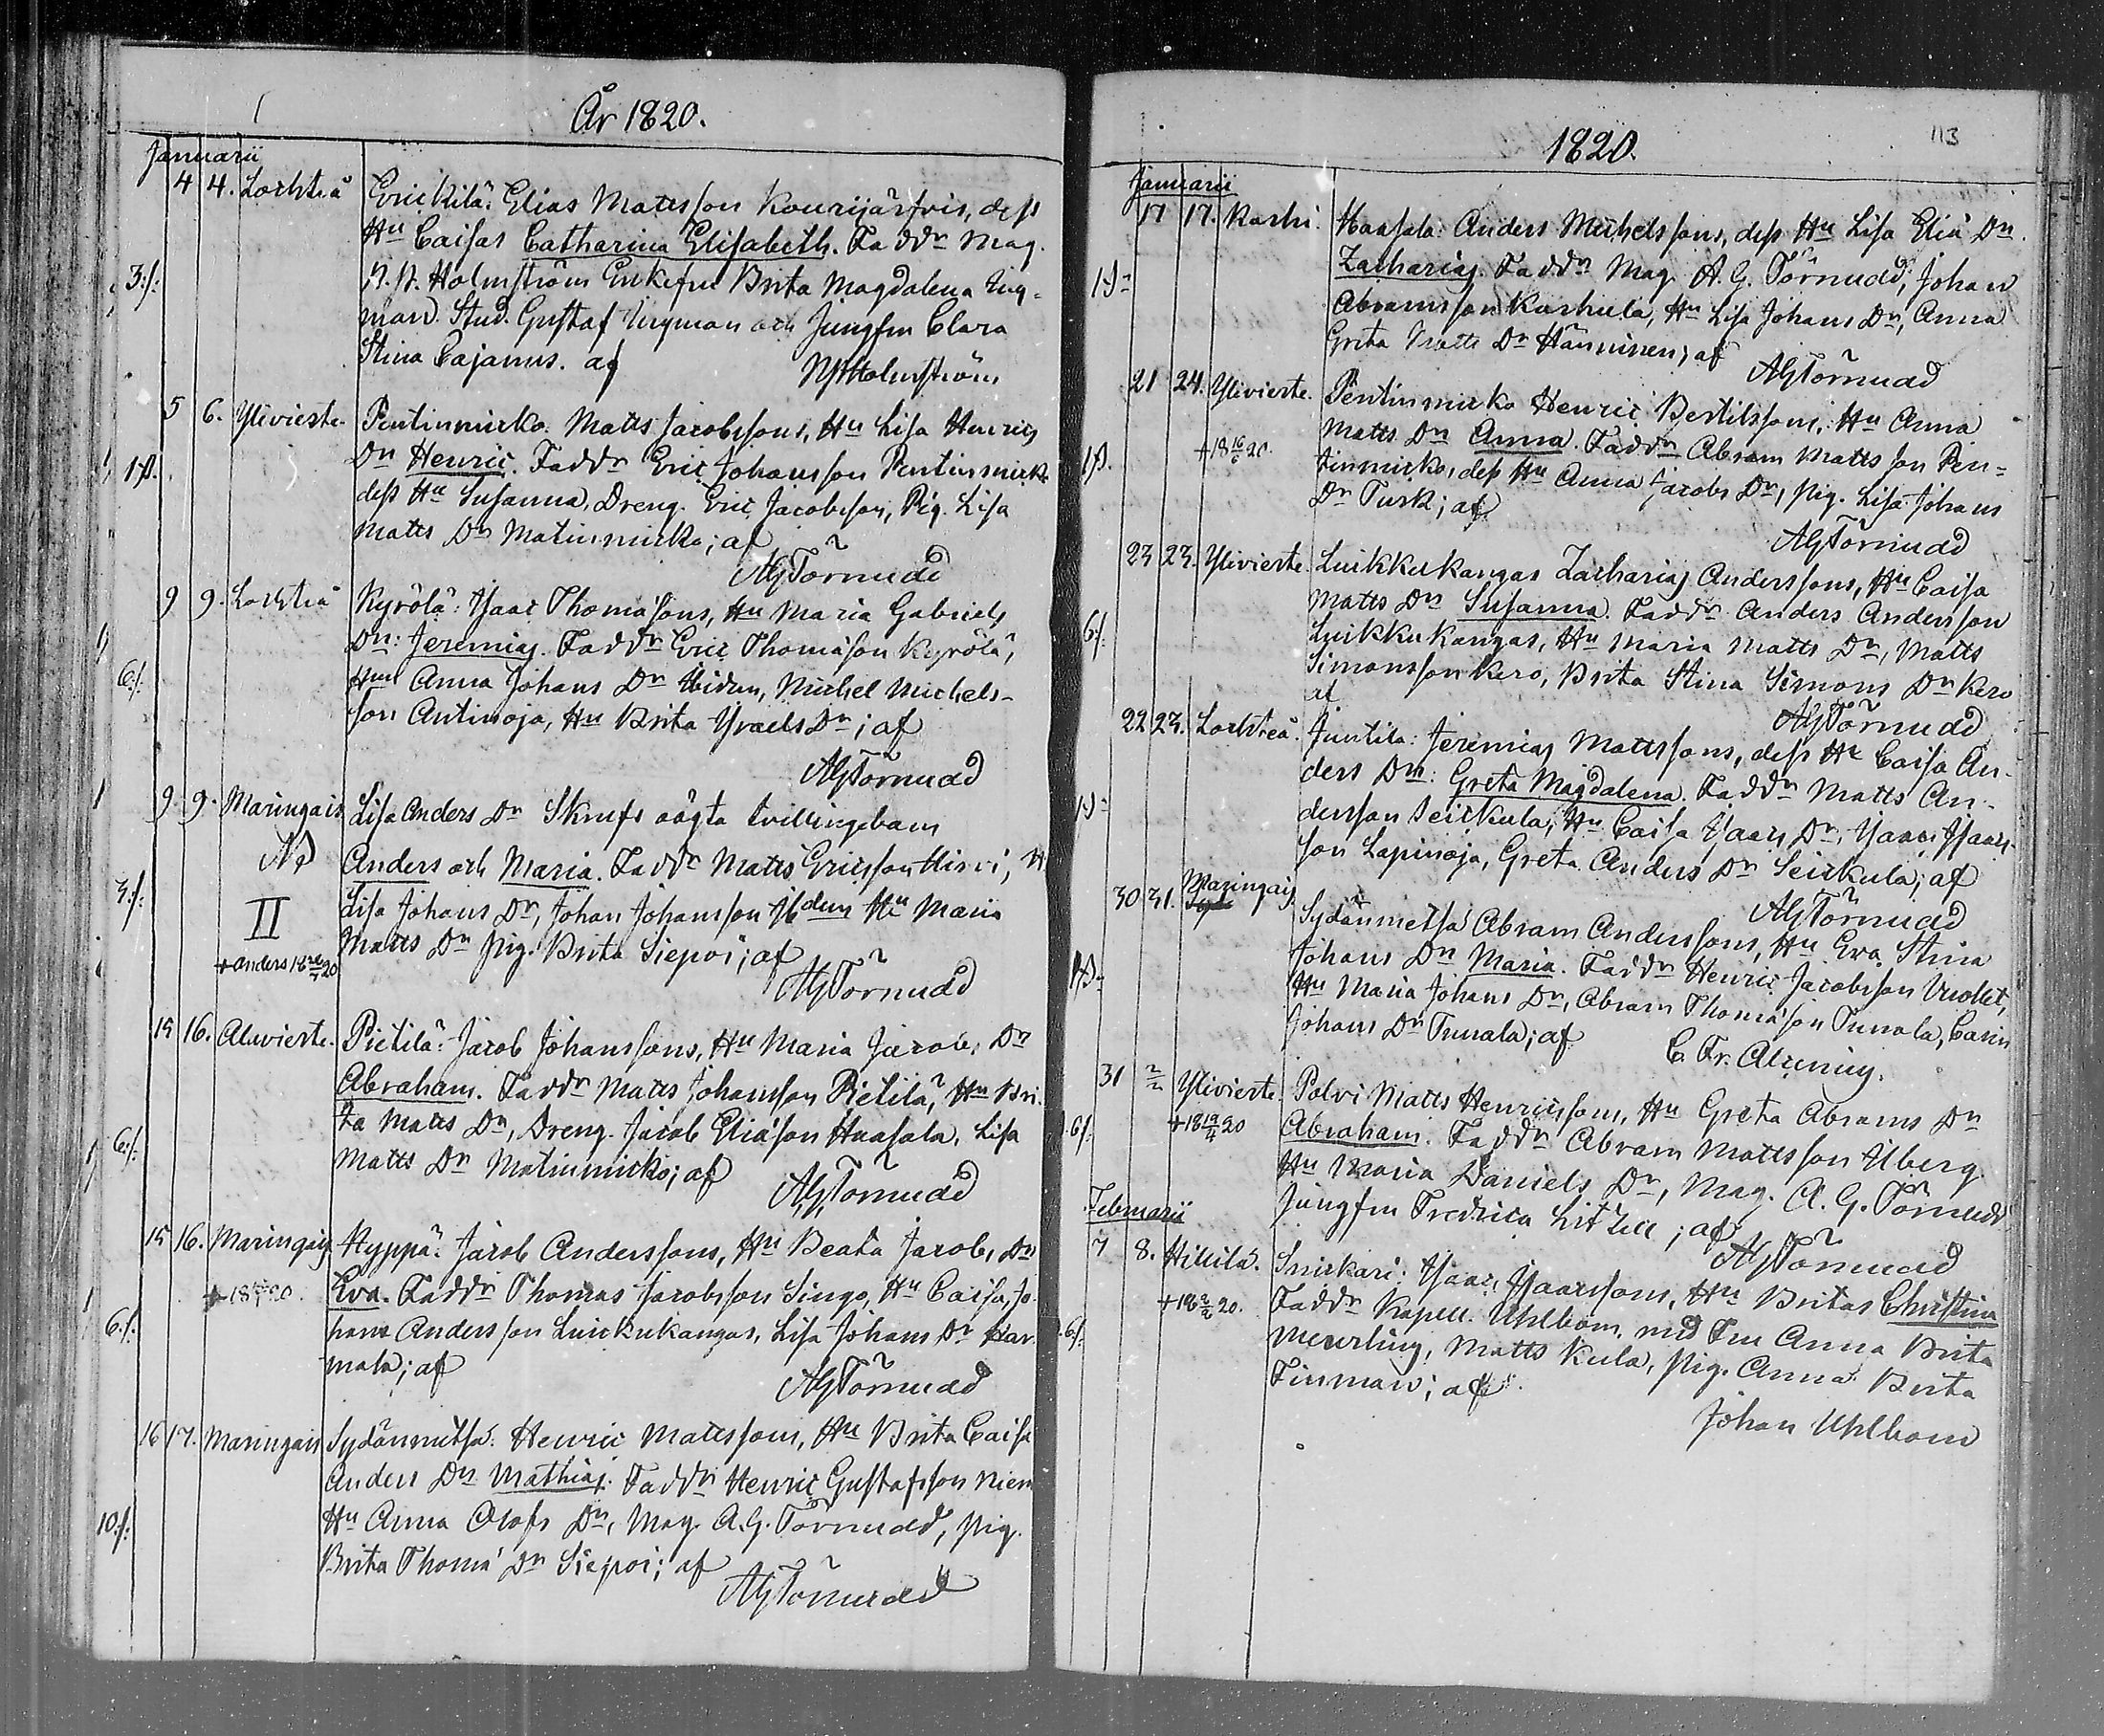 År 1820.
Januarii
4 4. Lochteå Erickilä: Elias Mattsson Kourijärfvis, dess
Hu Caisas Catharina Elisabeth. Faddr Mag.
3:/: Holmström Enkefru Brita Magdalena Ung-
man. Stud. Gustaf Ungman och Jungfru Clara
Stina Cajanus. af Holmström
5 6. Ylivieska. Pentinmicko. Matts Jacobssons, Hu Lisa Henrics
Dr Henric. Faddr Eric Johansson Pentinmick.
dess Hu Susanna, Dreng. Eric Jacobsson, Pig. Lisa
Matts Dr Matinmicko; af
AGTörnudd
9 9. Lochteå Kyrölä: Isaac Thomæsons, Hu Maria Gabriels
Dr: Jeremias. Faddr Eric Thomæson Kyrölä,
6:/: Hu Anna Johans Dr Ibidem, Michel Michels-
son Antinoja, Hu Brita Israels Dr; af
AGTörnudd
9. 9. Maringais Lisa Anders Dr Skrufs oägta tvillingebarn
Anders och Maria. Faddr Matts Ericsson Hirvi, H
3:/: II Lisa Johans Dr, Johan Johansson Ibdem Hu Maria
Matts Dr Pig. Brita Siepoi; af
+ Anders 18 20
AGTörnudd
15 16. Alavieska. Pietilä: Jacob Johanssons, Hu Maria Jacobs Dr
Abraham. Faddr Matts Johansson Pietilä, Hu Bri-
ta Matts Dr, Dreng. Jacob Eliæson Haasala, Lisa
6:/: Matts Dr Matinmicko; af
AGTörnudd
15 16. Maringais Hyppä: Jacob Anderssons, Hu Beata Jacobs Dr
Eva. Faddr Thomas Jacobsson Singo, Hu Caisa, Jo-
6:/: hans Andersson Luickukangas, Lisa Johans Dr Har-
mala; af
AGTörnudd
16 17. Maringais Sydänmetsä: Henric Mattssons, Hu Brita Caisa
Anders Dr Mathias. Faddr Henric Gustafsson Niem
10:/: Hu Anna Olofs Dr, Mag. A.G. Törnudd, Pig.
Brita Thomæ Dr Siepoi; af
AGTörnudd
1820.
113
Januarii
17 17. Kaski. Haasala: Anders Michelssons, dess Hu Lisa Eliæ Dr.
Zacharias. Faddr Mag. A.G. Törnudd, Johan
Abramsson Karhula, Hu Lisa Johans Dr, Anna
Greta Matts Dr Hänninen; af
AGTörnudd
21 24. Ylivieska. Pentinmicko Henric Bertilssons, Hu Anna
Matts Dr Anna. Faddr Abram Mattsson Pen-
+18 16/6 20. tinmicko, dess Hu Anna Jacobs Dr, Pig. Lisa Johans
Dr Turk; af
AGTörnudd
23 23. Ylivieska. Luikkukangas Zacharias Anderssons, Hu Caisa
Matts Dr Susanna. Faddr Anders Andersson
6:/: Luikkukangas, Hu Maria Matts Dr, Matts
Simonsson Kero, Brita Stina Simons Dr Kero
af
AGTörnudd
22 23. Lochteå. Juntila: Jeremias Mattssons, dess Hu Caisa An-
ders Dr: Greta Magdalena. Faddr Matts An-
dersson Seickula, Hu Caisa Isaacs Dr, Isaac Isaacs-
son Lapinoja, Greta Anders Dr Seickula; af
AGTörnudd
30 31. Maringais Sydänmetsä Abram Anderssons, Hu Eva Stina
Johans Dr Maria. Faddr Henric Jacobsson Vuollet,
Hu Maria Johans Dr, Abram Thomæson Tunala, Carin
Johans Dr Tunala; af
C. Fr. Alcenius.
31 2/2 Ylivieska. Polvi Matts Henricssons, Hu Greta Abrams Dr
6:/: Abraham. Faddr Abram Mattsson Uberg
Hu Maria Daniels Dr, Mag. A. G. Törnudd
Jungfru Fredrica ; af
AGTörnudd
Februarii
7 8. Hihila. Snickari: Isaac Isaacssons, Hu Britas Christina
Faddr Kapell. Uhlbom, med Fru Anna Brita
6:/: Meurling, Matts Kula, Pig. Anna Brita
Finman; af.
Johan Uhlbom